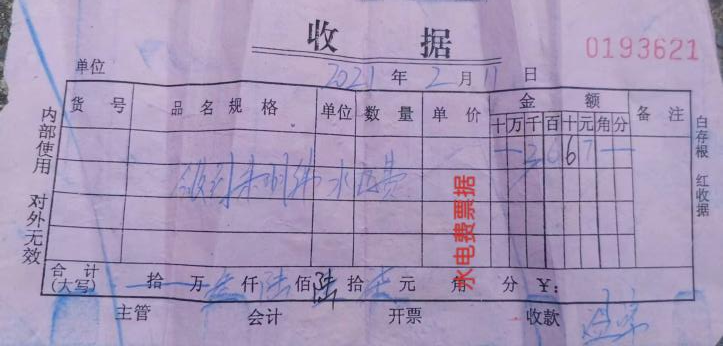 收 据
0193621
单位 2021 年 2 月 11 日
货 号 品 名 规 格 单位 数 量 单 价 金 额 备 注
十 万 千 百 十 元 角 分
一 3 6 6 7 一
收到 水电费
水电费票据
合 计
(大写) 拾 万 叁 仟 陆 佰 陆 拾 柒 元 角 分 ¥:
主管 会计 开票 收款
内部使用 对外无效
白存根 红收据